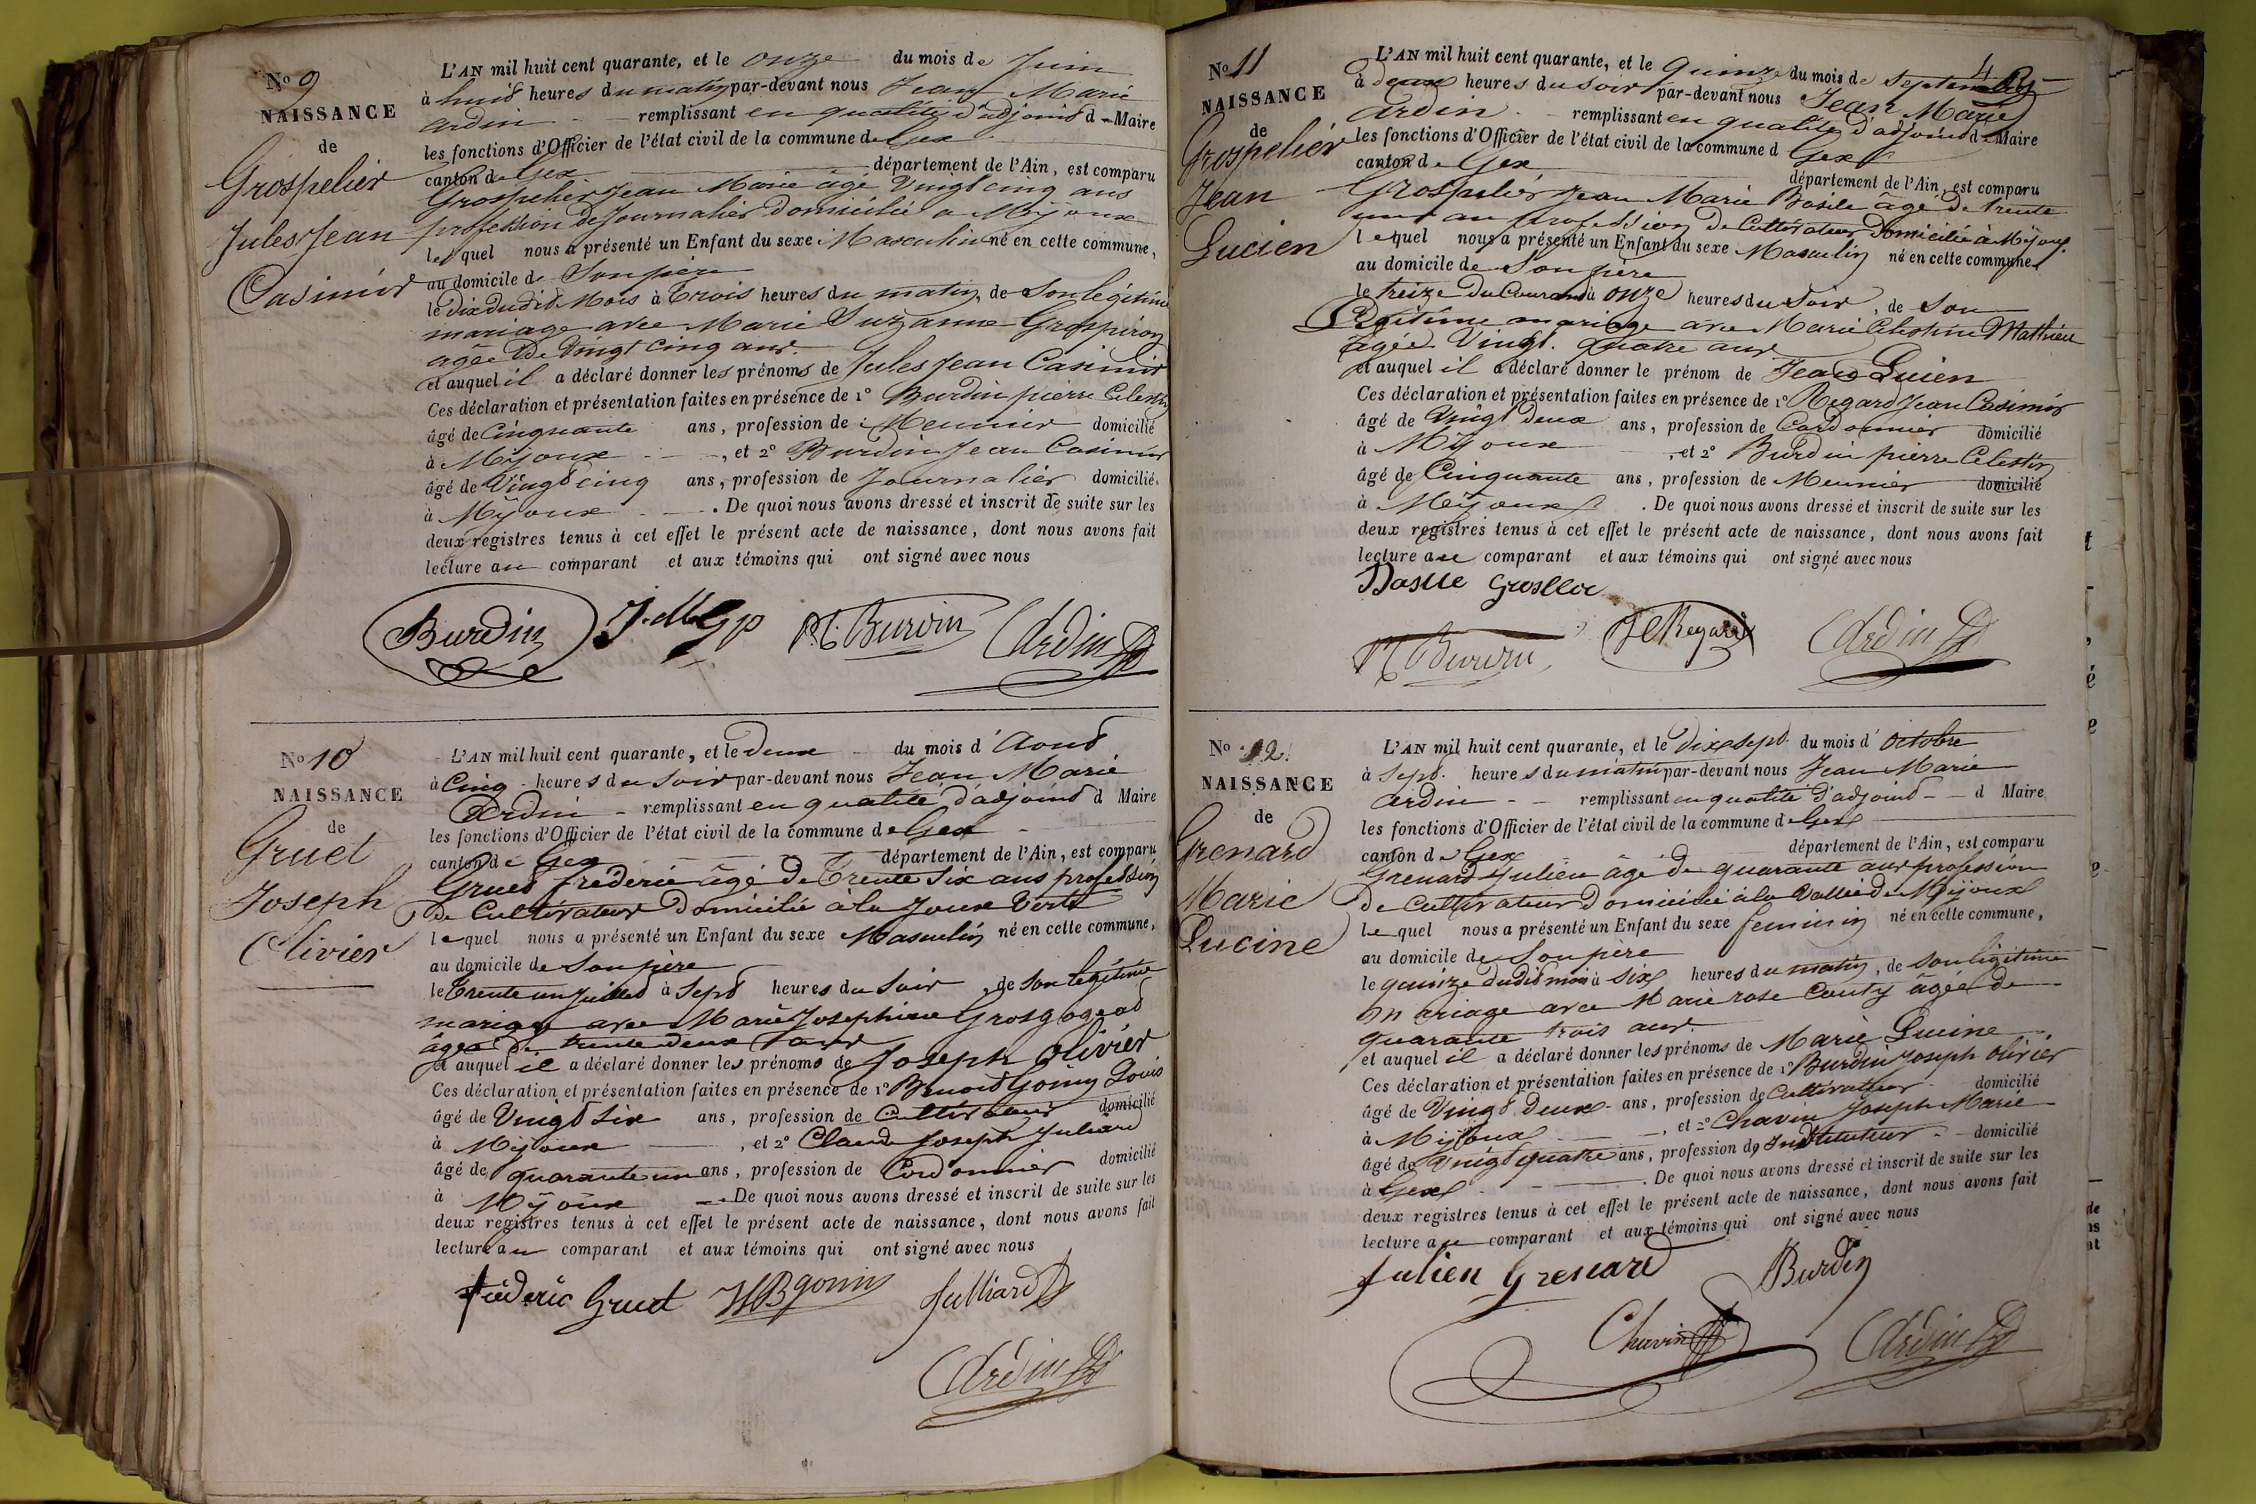 No 9
NAISSANCE
de
Grospelier
Jules Jean
Casimir
L'AN mil huit cent quarante, et le onze du mois de Juin
à huit heures du matin par-devant nous Jean Marie
Ardin remplissant en qualité d'adjoint d Maire
les fonctions d'Officier de l'état civil de la commune de Gex
canton de Gex département de l'Ain, est comparu
Grospelier Jean Marie âgé Vingt cinq ans
profession de Journalier domicilié a Mijoux
lequel nous a présenté un Enfant du sexe Masculin né en cette commune,
au domicile de Son père
le dix dudit Mois à trois heures du matin, de Son légitime
mariage avec Marie Suzanne Grospiron
agée de Vingt cinq ans.
et auquel il a déclaré donner les prénoms de Jules Jean Casimir
Ces déclaration et présentation faites en présence de 1° Burdin pierre Celestin
âgé de Cinquante ans, profession de Meunier domicilié
à Mijoux , et 2° Burdin Jean Casimir
âgé de Vingt cinq ans, profession de Journalier domicilié
à Mijoux . De quoi nous avons dressé et inscrit de suite sur les
deux registres tenus à cet effet le présent acte de naissance, dont nous avons fait
lecture au comparant et aux témoins qui ont signé avec nous
Burdin Burdin Ardin
No 10
NAISSANCE
de
Gruet
Joseph
Olivier
L'AN mil huit cent quarante, et le deux du mois d'Aout
à Cinq heures du Soir par-devant nous Jean Marie
Ardin remplissant en qualité d'adjoint d Maire
les fonctions d'Officier de l'état civil de la commune de Gex
canton de Gex département de l'Ain, est comparu
Gruet frédéric âgé de Trente Six ans profession
de Cultivateur Domicilié à la Joux Verte
lequel nous a présenté un Enfant du sexe Masculin né en cette commune,
au domicile de Son père
le Trente un Juillet à Sept heures du Soir, de Son légitime
mariage avec Marie Josephine Grosgogeat
âgée de trente deux ans
et auquel il a déclaré donner les prénoms de Joseph Olivier
Ces déclaration et présentation faites en présence de 1° Benoit Gonin Louis
âgé de Vingt Six ans, profession de Cultivateur domicilié
à Mijoux , et 2° Claude Joseph Juliard
âgé de quarante un ans, profession de Cordonnier domicilié
à Mijoux De quoi nous avons dressé et inscrit de suite sur les
deux registres tenus à cet effet le présent acte de naissance, dont nous avons fait
lecture au comparant et aux témoins qui ont signé avec nous
fréderic Gruet gonin Julliard
Ardin
4
No 11
NAISSANCE
de
Grospelier
Jean
Lucien
L'AN mil huit cent quarante, et le quinze du mois de Septembre
à deux heures du soir par-devant nous Jean Marie
Ardin remplissant en qualité d'adjoint d Maire
les fonctions d'Officier de l'état civil de la commune d Gex
canton de Gex département de l'Ain, est comparu
Grospelier Jean Marie Basile âgé de trente
un an profession de Cultivateur domicilié à Mijoux
lequel nous a présenté un Enfant du sexe Masculin né en cette commune
au domicile de Son père
le treize du Courant à onze heures du Soir, de Son
Légitime mariage avec Marie Celestine Mathieu
agée Vingt quatre ans
et auquel il a déclaré donner le prénom de Jean Lucien
Ces déclaration et présentation faites en présence de 1° Regard Jean Casimir
âgé de Vingt deux ans, profession de Cordonnier domicilié
à Mijoux , et 2° Burdin pierre Celestin
âgé de Cinquante ans, profession de Meunier domicilié
à Mijoux . De quoi nous avons dressé et inscrit de suite sur les
deux registres tenus à cet effet le présent acte de naissance, dont nous avons fait
lecture au comparant et aux témoins qui ont signé avec nous
Basile
Burdin Regard Ardin
No 12
NAISSANCE
de
Grenard
Marie
Lucine
L'AN mil huit cent quarante, et le dix sept du mois d'octobre
à Sept heures du matin par-devant nous Jean Marie
Ardin remplissant en qualité d'adjoint d Maire
les fonctions d'Officier de l'état civil de la commune de Gex
canton de Gex département de l'Ain, est comparu
Grenard Julien âgé de quarante ans profession
de Cultivateur domicilié à la Vallée de Mijoux
lequel nous a présenté un Enfant du sexe feminin né en cette commune,
au domicile de Son père
le quinze dudit mois à six heures du matin, de Son légitime
mariage avec Marie rose Couty âgée de
quarante trois ans.
et auquel il a déclaré donner les prénoms de Marie Lucine
Ces déclaration et présentation faites en présence de 1° Burdin Joseph Olivier
âgé de Vingt deux ans, profession de Cultivateur domicilié
à Mijoux , et 2° Chavin Joseph Marie
âgé de Vingt quatre ans, profession de Instituteur domicilié
à Gex . De quoi nous avons dressé et inscrit de suite sur les
deux registres tenus à cet effet le présent acte de naissance, dont nous avons fait
lecture au comparant et aux témoins qui ont signé avec nous
Julien Grenard Burdin
Chavin Ardin